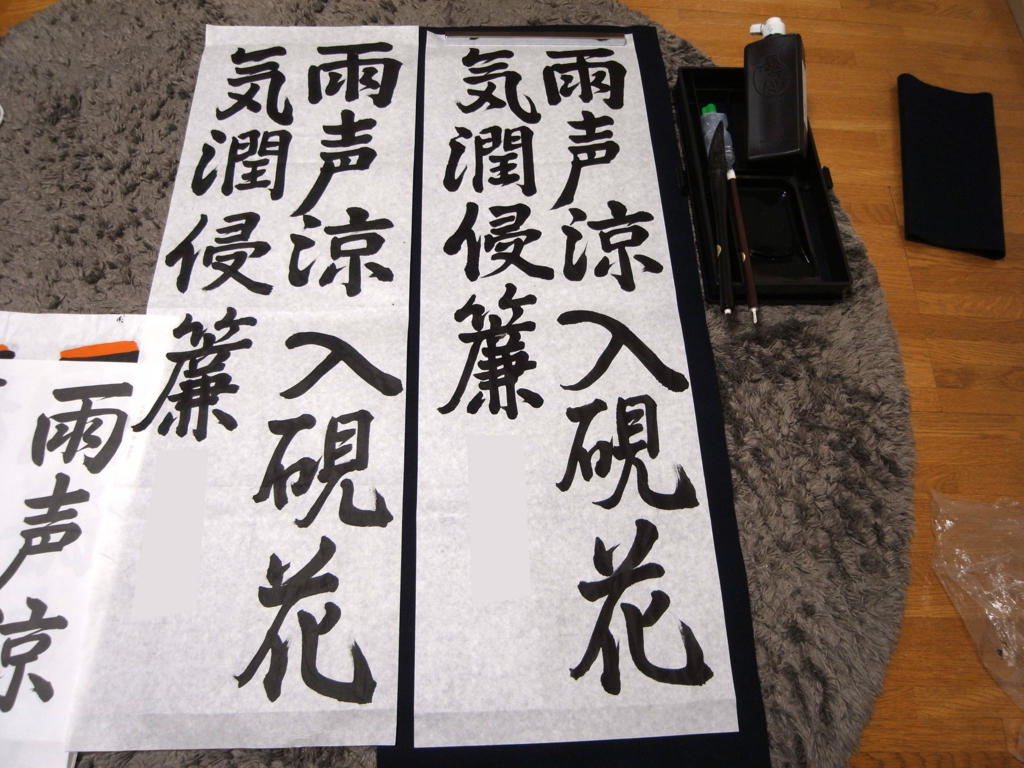 雨声涼入硯花
気潤侵簾
雨声涼入硯花
気潤侵簾
雨声涼